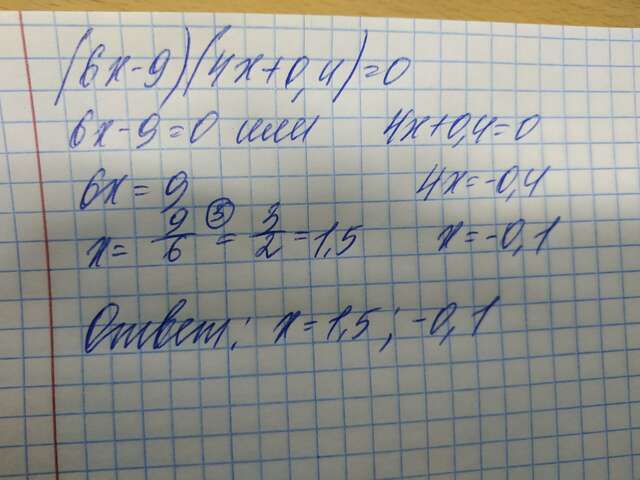 (6x-9)(4x+0,4)=0
6x-9=0 или 4x+0,4=0
6x=9 4x=-0,4
x= 9/6 ③ = 3/2 =1,5 x=-0,1
Ответ: x=1,5; -0,1